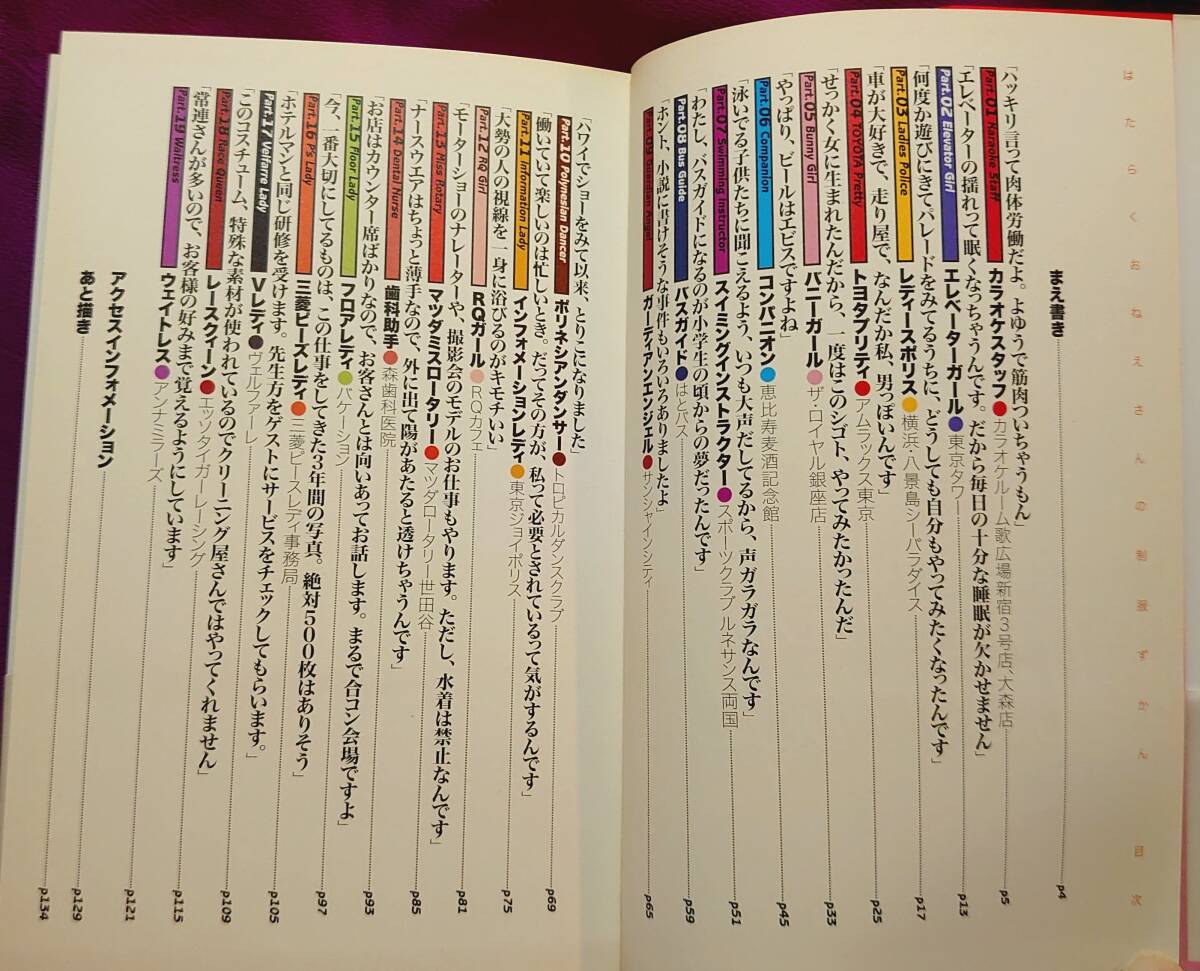 はたらくおねえさんの制服ずかん 目次
まえ書き p4
「ハッキリ言って肉体労働だよ。よゆうで筋肉ついちゃうもん」
Part.01 Karaoke Staff カラオケスタッフ●カラオケルーム歌広場新宿3号店、大森店 p5
「エレベーターの揺れって眠くなっちゃうんです。だから毎日の十分な睡眠が欠かせません」
Part.02 Elevator Girl エレベーターガール●東京タワー p13
「何度か遊びにきてパレードをみてるうちに、どうしても自分もやってみたくなったんです」
Part.03 Ladies Police レディースポリス●横浜・八景島シーパラダイス p17
「車が大好きで、走り屋で、なんだか私、男っぽいんです」
Part.04 TOYOTA Pretty トヨタプリティ●アムラックス東京 p25
「せっかく女に生まれたんだから、一度はこのシゴト、やってみたかったんだ」
Part.05 Bunny Girl バニーガール●ザ・ロイヤル銀座店 p33
「やっぱり、ビールはエビスですよね」
Part.06 Companion コンパニオン●恵比寿麦酒記念館 p45
「泳いでる子供たちに聞こえるよう、いつも大声だしてるから、声ガラガラなんです」
Part.07 Swimming Instructor スイミングインストラクター●スポーツクラブ ルネサンス両国 p51
「わたし、バスガイドになるのが小学生の頃からの夢だったんです」
Part.08 Bus Guide バスガイド●はとバス p59
「ホント、小説に書けそうな事件もいろいろありましたよ」
Part.09 Guardian Angel ガーディアンエンジェル●サンシャインシティ p65
「ハワイでショーをみて以来、とりこになりました」
Part.10 Polynesian Dancer ポリネシアンダンサー●トロピカルダンスクラブ p69
「働いていて楽しいのは忙しいとき。だってその方が、私って必要とされているって気がするんです」
Part.11 Information Lady インフォメーションレディ●東京ジョイポリス p75
「大勢の人の視線を一身に浴びるのがキモチいい」
Part.12 RQ Girl RQガール●RQカフェ p81
「モーターショーのナレーターや、撮影会のモデルのお仕事もやります。ただし、水着は禁止なんです」
Part.13 Miss Rotary マツダミスロータリー●マツダロータリー世田谷 p85
「ナースウエアはちょっと薄手なので、外に出て陽があたると透けちゃうんです」
Part.14 Dental Nurse 歯科助手●森歯科医院 p93
「お店はカウンター席ばかりなので、お客さんとは向いあってお話します。まるで合コン会場ですよ」
Part.15 Floor Lady フロアレディ●バケーション p97
「今、一番大切にしてるものは、この仕事をしてきた3年間の写真。絶対500枚はありそう」
Part.16 P's Lady 三菱ピーズレディ●三菱ピーズレディ事務局 p105
「ホテルマンと同じ研修を受けます。先生方をゲストにサービスをチェックしてもらいます。」
Part.17 Velfarre Lady Vレディ●ヴェルファーレ p109
「このコスチューム、特殊な素材が使われているのでクリーニング屋さんではやってくれません」
Part.18 Race Queen レースクィーン●エッソタイガーレーシング p115
「常連さんが多いので、お客様の好みまで覚えるようにしています」
Part.19 Waitress ウェイトレス●アンナミラーズ p121
アクセスインフォメーション p129
あと描き p134